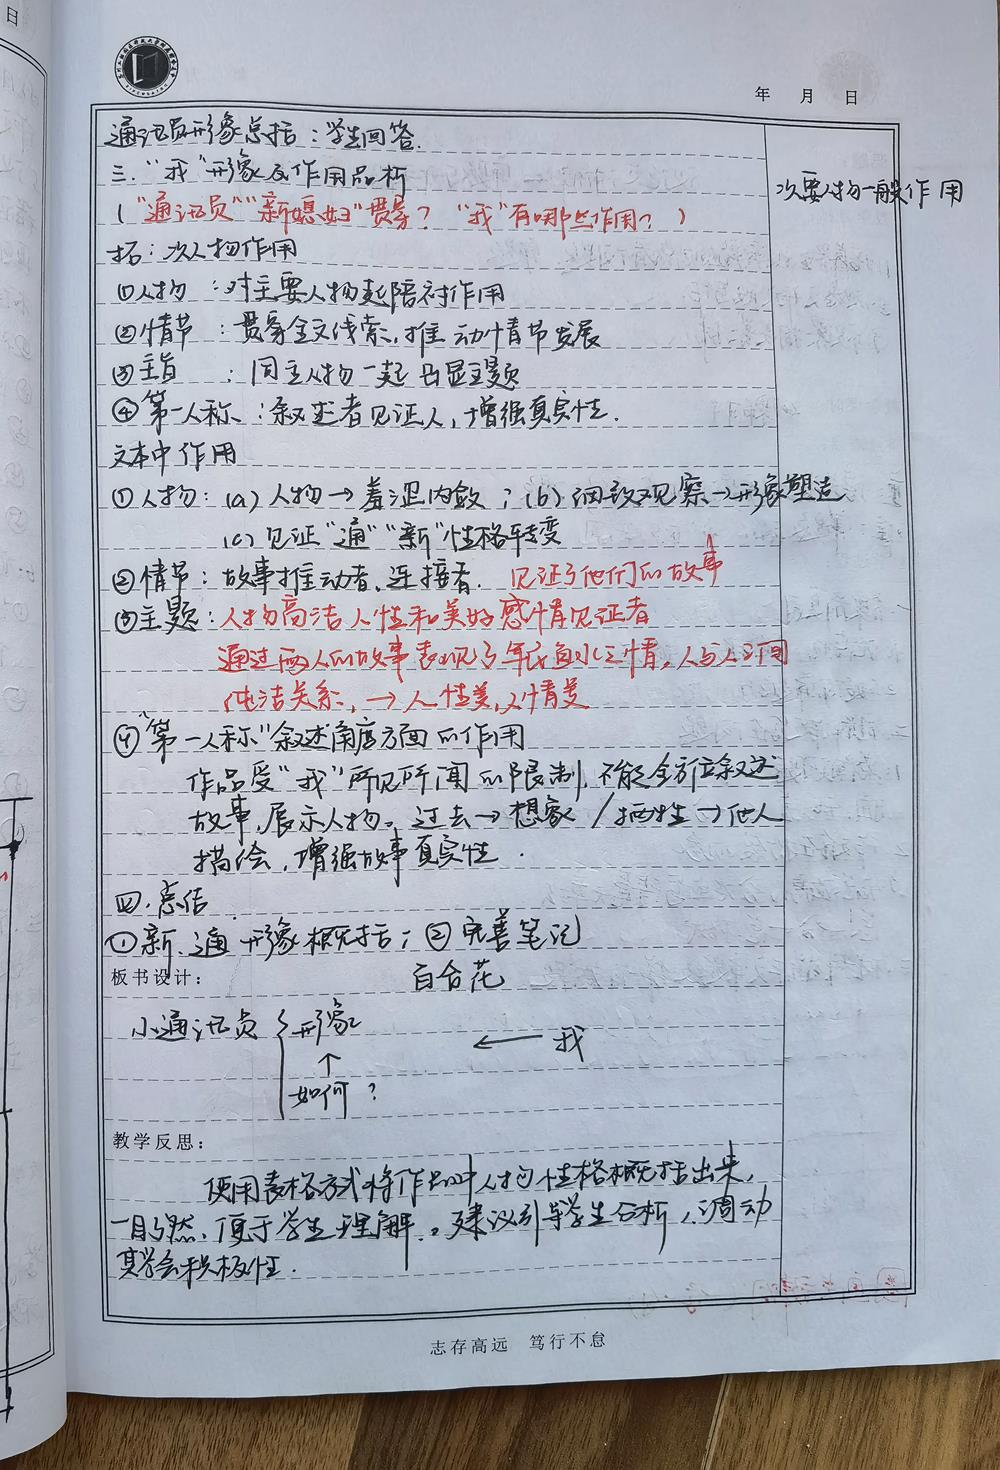 日
年 月 日
通讯员形象总结：学生回答.
三."我"形象及作用品析
次要人物一般作用
（"通讯员""新媳妇"贯穿？"我"有哪些作用？）
拓：次人物作用
①人物：对主要人物起陪衬作用
②情节：贯穿全文线索,推动情节发展
③主旨：同主人物一起凸显主题
④第一人称：叙述者见证人,增强真实性.
文本中作用
①人物：(a)人物→羞涩内敛；(b)细致观察→形象塑造
(c)见证"通""新"性格转变
②情节：故事推动者、连接者. 见证了他们的故事
③主题：人物高洁人性和美好感情见证者
通过两人的故事表现了军民鱼水之情,人与人之间
纯洁关系,→人性美,人情美
④"第一人称"叙述角度方面的作用
作品受"我"所见所闻的限制,不能全方位叙述
故事,展示人物。过去→想象/牺牲→他人
描绘,增强故事真实性.
四.总结
①新.通形象概括；②完善笔记
板书设计：
百合花
小通讯员 { 形象 ← 我
↑
如何？
教学反思：
使用表格方式将作品中人物性格概括出来,
一目了然,便于学生理解。建议引导学生分析,调动
其学会积极性.
志存高远 笃行不怠